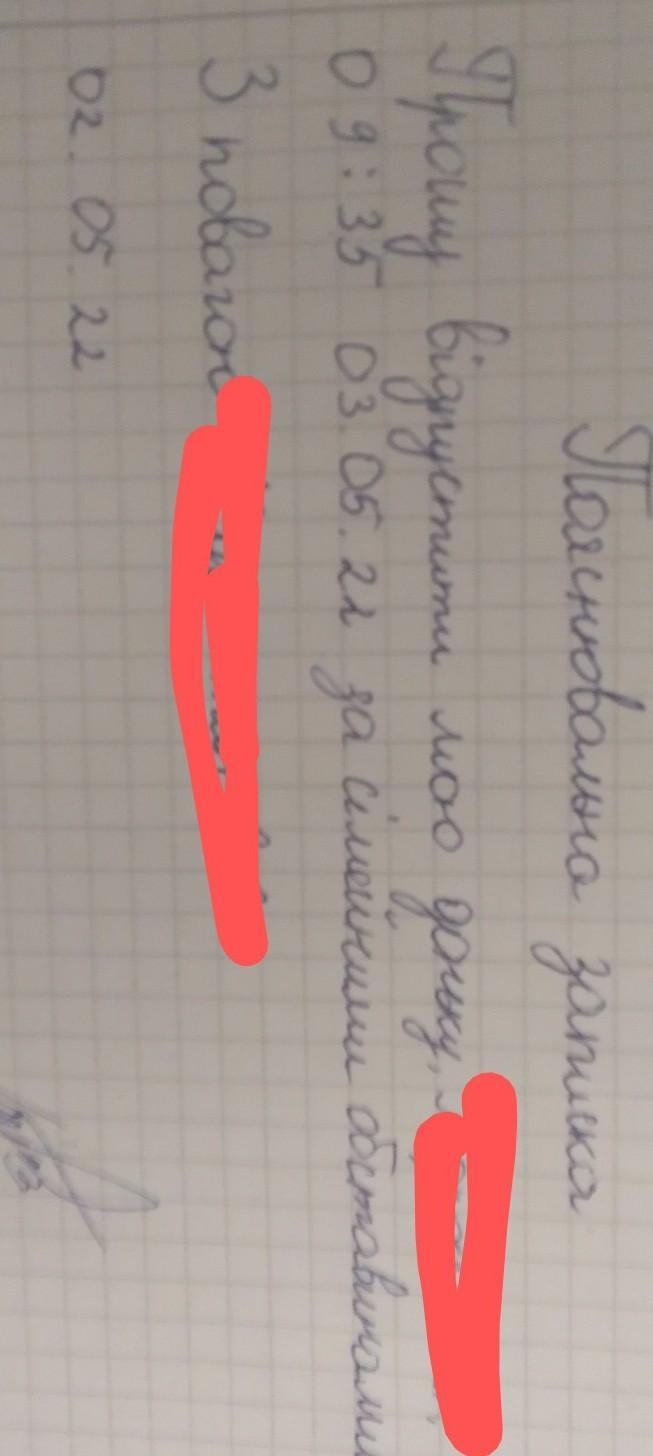 Пояснювальна записка
Прошу відпустити мою доньку,
о 9:35 03.05.22 за сімейними обставинами
З повагою
02.05.22